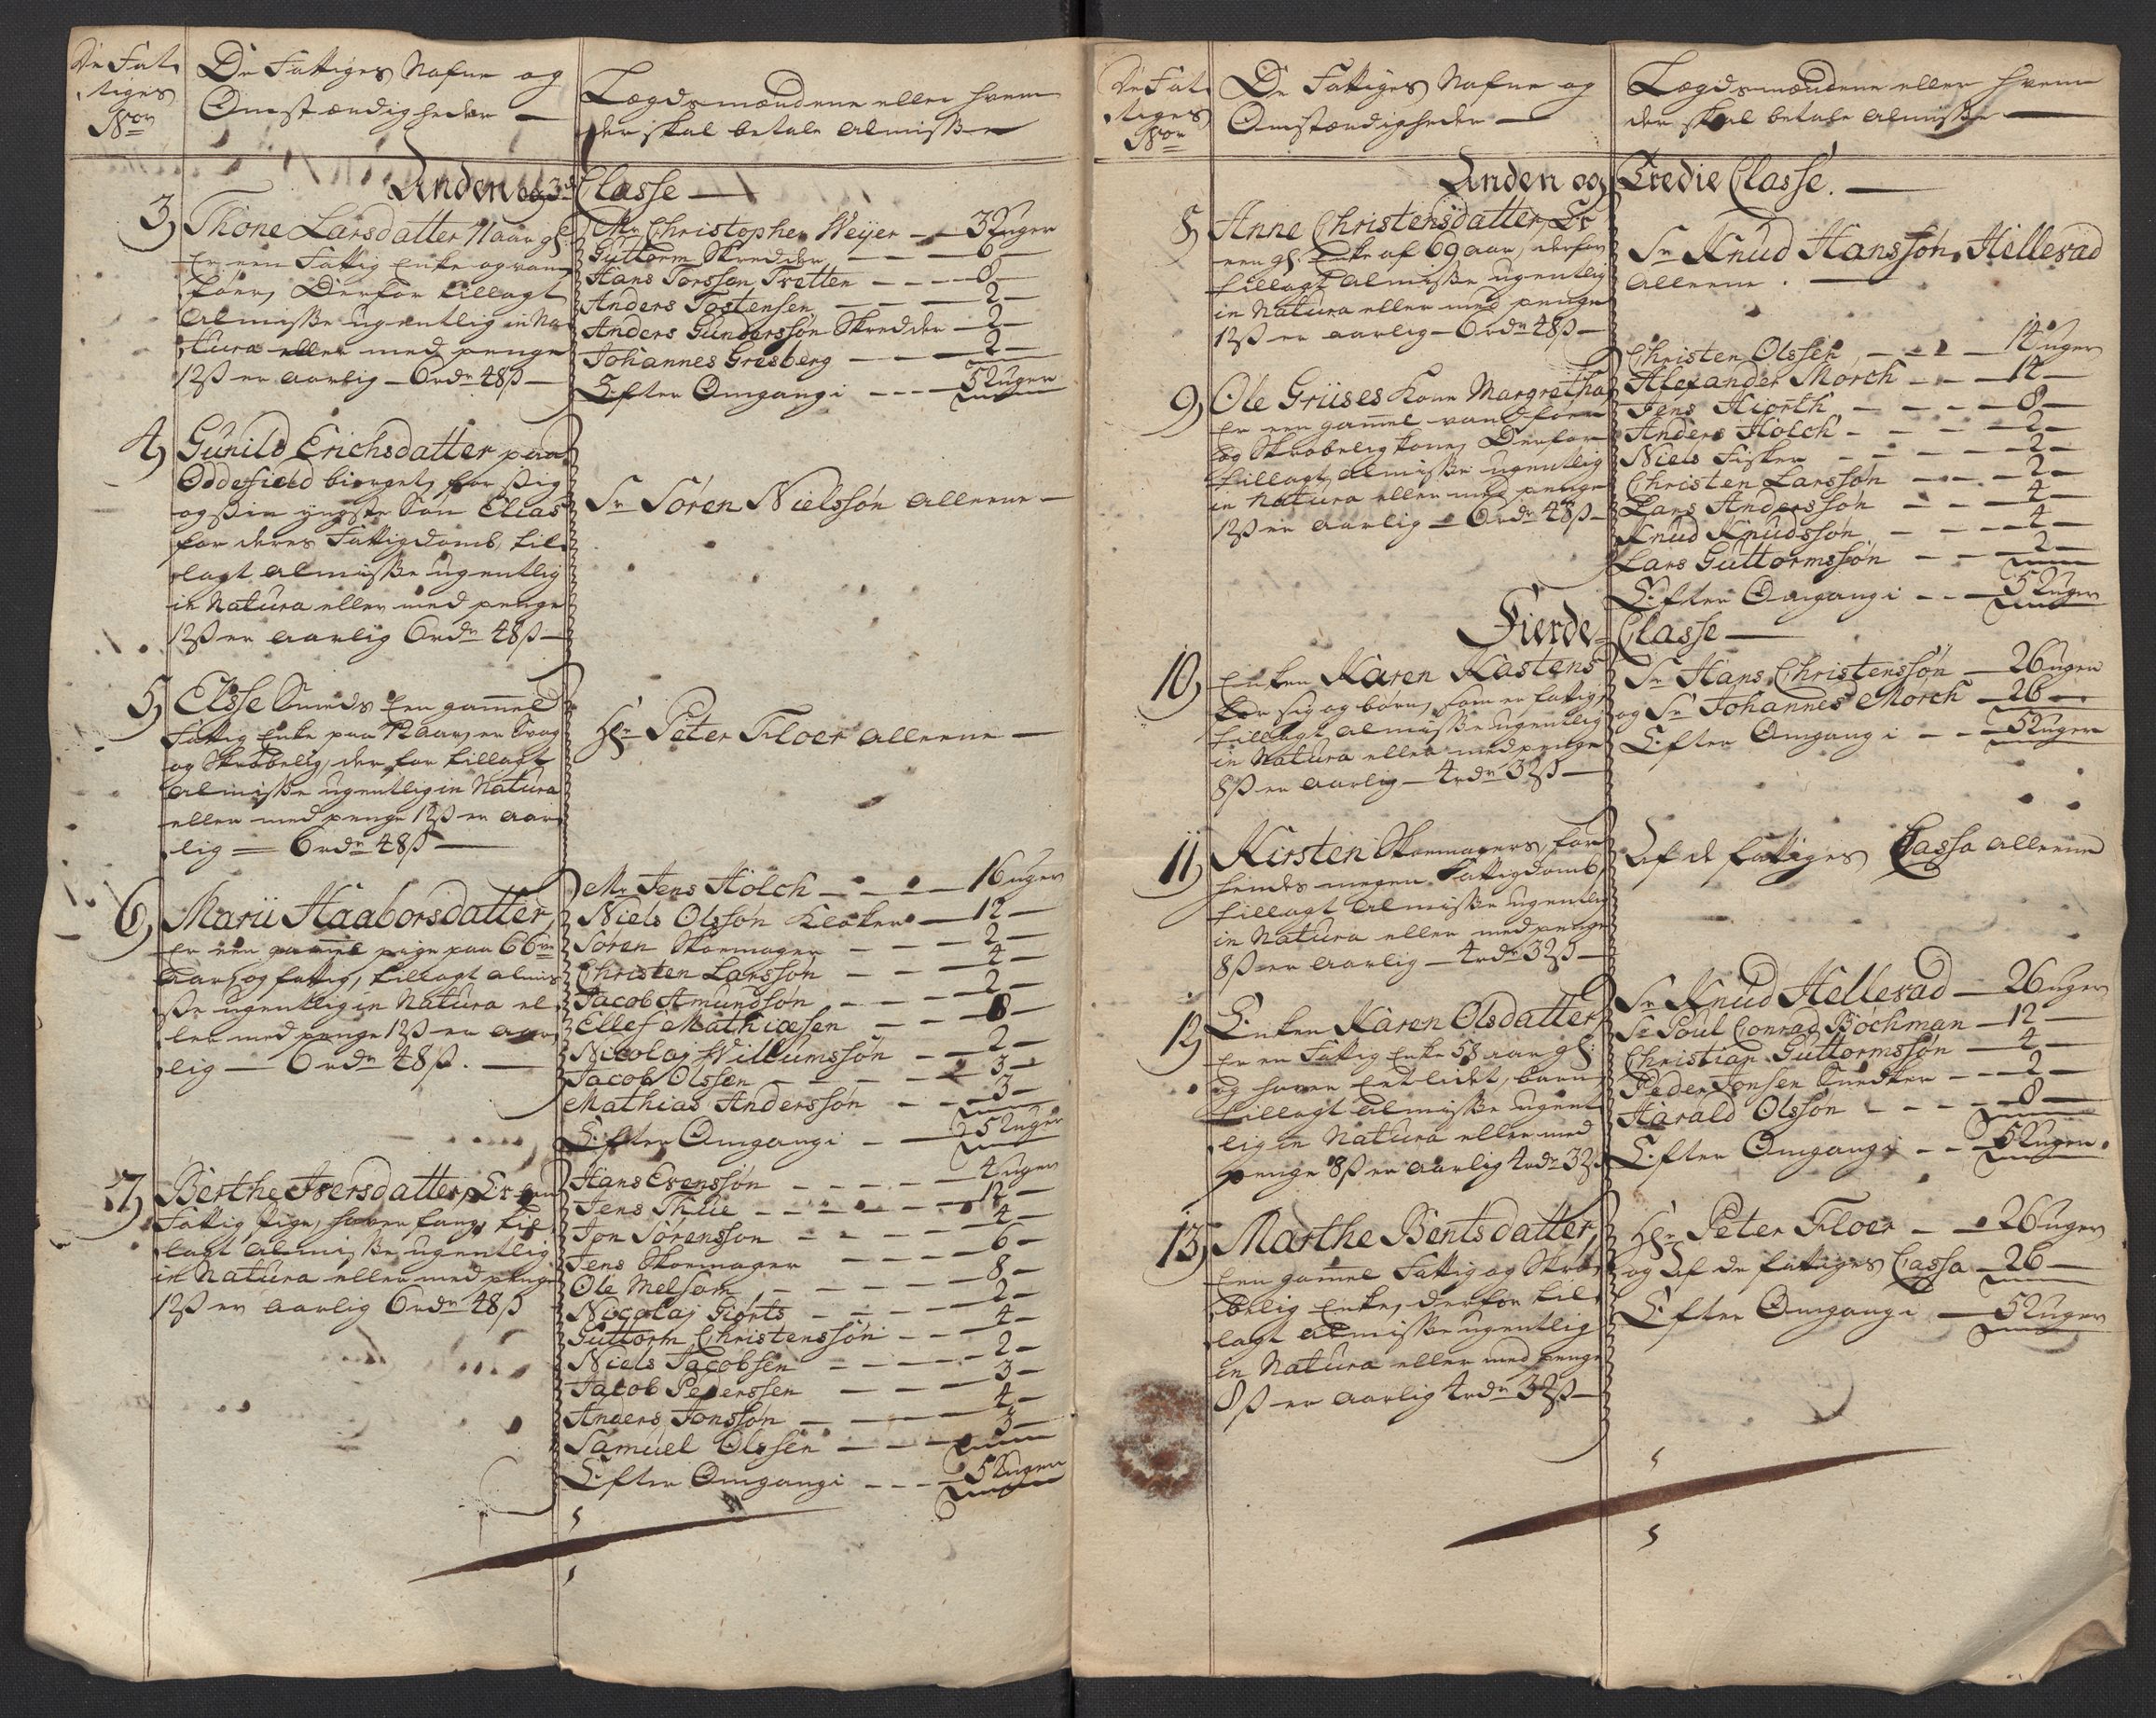 De Fat-
tiges
Nor
De Fattiges Nafne og
Omstændigheder —
Lægdsmændene eller hvem
der skal betale Almisse
Anden og 3die Classe —
3) Thone Larsdatter
Er een Fattig Enke og van-
føer, Derfor tillagt
Almisse ugentlig in Na-
tura eller med penge
12ß er aarlig — 6 rdr 48ß —
Mr Christopher Weyer — 32 uger
Guttorm Skredder — — — 6 —
Hans Torssen Tretten — — — 8 —
Anders Tostensen — — — 2 —
Anders Gundersøn Skredder — 2 —
Johannes Gresberg — — — 2 —
Efter Omgang i — — — 52 uger
4) Gunild Erichsdatter paa
Oddefield bierget, for sig
og sin yngste Søn Elias
for deres Fattigdomb, til-
lagt Almisse ugentlig
in Natura eller med penge
12ß er aarlig 6 rdr 48ß —
Sr Søren Nielssøn alleene —
5) Elsse Smeds Een gammel
Fattig Enke paa 72 aar, er Svag
og Skrøbelig, der for tillagt
Almisse ugentlig in Natura
eller med penge 12ß er aar-
lig — 6 rdr 48ß —
Hr Peter Floer alleene —
6) Marii Haaborsdatter,
Er een gammel pige paa 66
aar, og fattig, tillagt almis-
se ugentlig in Natura el-
ler med penge 12ß er aar-
lig — 6 rdr 48ß. —
Mr Jens Holch — — — 16 uger
Niels Olssøn Klokker — 12 —
Søren Skoemager — — — 2 —
Christen Larssøn — — — 4 —
Jacob Amundsøn — — — 2 —
Ellef Mathiesen — — — 8 —
Nicolaj Willumssøn — — 2 —
Jacob Olssen — — — 3 —
Mathias Anderssøn — — 3 —
Efter Omgang i — — 52 uger
7) Berthe Iversdatter, Er een
Fattig Pige, til-
lagt Almisse ugentlig
in Natura eller med penge
12ß er aarlig 6 rdr 48ß
Hans Evenssøn — — — 4 uger
Jens Thue — — — 12 —
Jon Sørenssøn — — — 4 —
Jens Skoemager — — — 6 —
Ole Melsom — — — 8 —
Nicolaj Giørts — — — 2 —
Guttorm Christenssøn — — 4 —
Niels Jacobsen — — — 2 —
Jacob Pederssen — — — 3 —
Anders Jonssøn — — — 4 —
Samuel Olssen — — — 3 —
Efter Omgang i — — — 52 uger
De Fat-
tiges
Nor
De Fattiges Nafne og
Omstændigheder —
Lægdsmændene eller hvem
der skal betale Almisse —
Anden og Tredie Classe. —
8) Anne Christensdatter, Er
een gl: Enke af 69 aar, derfor
tillagt Almisse ugentlig
in Natura eller med penge
12ß er aarlig — 6 rdr 48ß —
Sr Knud Hanssøn Hellesrad
alleene. —
9) Ole Grüses Kone Margretha
Er een gammel vanføer
og Skrøbelig Kone, Derfor
tillagt Almisse ugentlig
in Natura eller med penge
12ß er aarlig — 6 rdr 48ß —
Christen Olssen — — — 14 uger
Alexander Morch — — — 12 —
Jens Hiorth — — — 8 —
Anders Holch — — — 2 —
Niels Fisker — — — 2 —
Christen Larssøn — — — 2 —
Lars Anderssøn — — — 4 —
Knud Knudssøn — — — 4 —
Lars Guttormssøn — — — 2 —
Efter Omgang i — — — 52 uger
Fierde Classe —
10) Enken Karen Kastens
for sig og børn, som er fattige,
tillagt Almisse ugentlig
in Natura eller med penge
8ß er aarlig — 4 rdr 32ß —
Sr Hans Christenssøn — 26 uger
og Sr Johannes Morch — 26 —
Efter Omgang i — — 52 uger
11) Kirsten Skoemagers, for
hendes megen Fattigdomb,
tillagt Almisse ugentlig
in Natura eller med penge
8ß er aarlig — 4 rdr 32ß —
Af de fattiges Cassa alleene
12) Enken Karen Olsdatter
Er en Fattig Enke 58 aar gl:
og haver Et lidet barn,
tillagt Almisse ugent-
lig in Natura eller med
penge 8ß er aarlig 4 rdr 32ß
Sr Knud Hellesrad — 26 uger
Sr Poul Conrad Bøchman — 12 —
Christian Guttormssøn — 4 —
Peder Jonsen Snedker — — 2 —
Harald Olssøn — — — 8 —
Efter Omgang i — — 52 uger
13) Marthe Bentsdatter,
Een gammel Fattig og Skrø-
belig Enke, derfor til-
lagt Almisse ugentlig
in Natura eller med penge
8ß er aarlig 4 rdr 32ß —
Hr Peter Floer — — 26 uger
og Af de fattiges Cassa — 26 —
Efter Omgang i — 52 uger